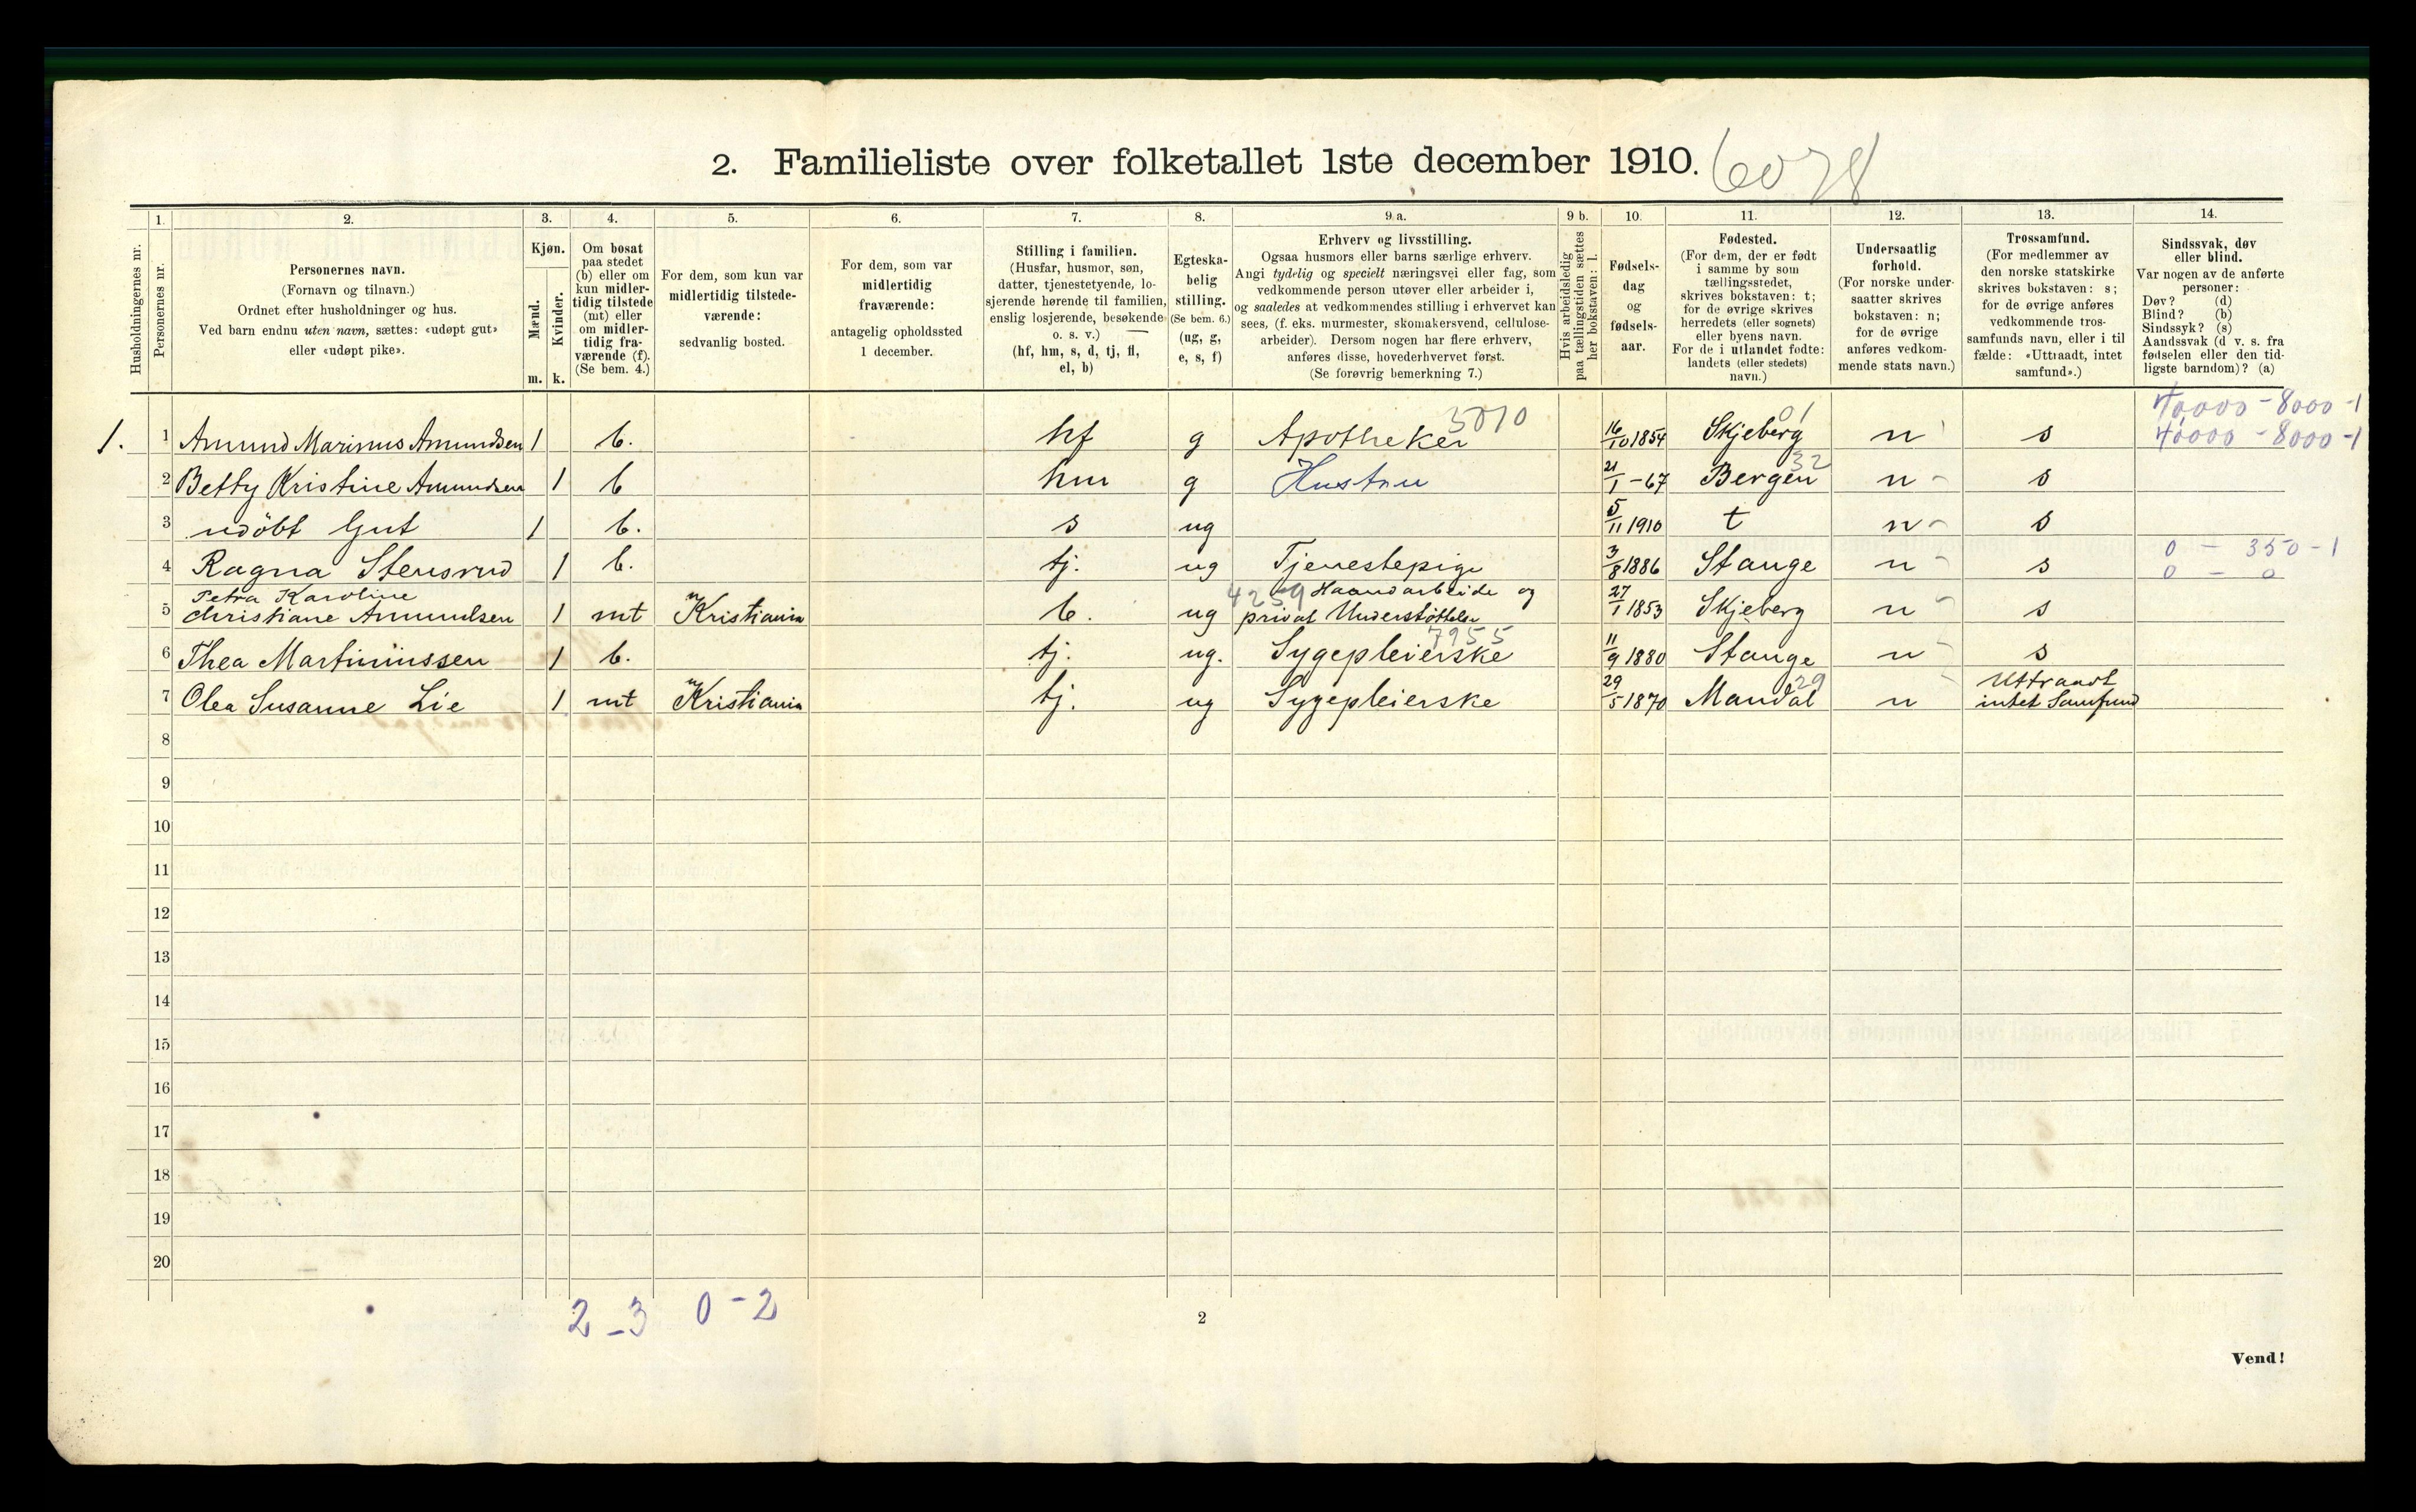 2. Familieliste over folketallet 1ste december 1910. 6078
1. 2. 3. 4. 5. 6. 7. 8. 9 a. 9 b. 10. 11. 12. 13. 14.
Husholdningernes nr.
Personernes nr.
Personernes navn.
(Fornavn og tilnavn.)
Ordnet efter husholdninger og hus.
Ved barn endnu uten navn, sættes: «udøpt gut»
eller «udøpt pike».
Kjøn.
Mænd.
Kvinder.
m. k.
Om bosat
paa stedet
(b) eller om
kun midler-
tidig tilstede
(mt) eller
om midler-
tidig fra-
værende (f).
(Se bem. 4.)
For dem, som kun var
midlertidig tilstede-
værende:
sedvanlig bosted.
For dem, som var
midlertidig
fraværende:
antagelig opholdssted
1 december.
Stilling i familien.
(Husfar, husmor, søn,
datter, tjenestetyende, lo-
sjerende hørende til familien,
enslig losjerende, besøkende
o. s. v.)
(hf, hm, s, d, tj, fl,
el, b)
Egteska-
belig
stilling.
(Se bem. 6.)
(ug, g,
e, s, f)
Erhverv og livsstilling.
Ogsaa husmors eller barns særlige erhverv.
Angi tydelig og specielt næringsvei eller fag, som
vedkommende person utøver eller arbeider i,
og saaledes at vedkommendes stilling i erhvervet kan
sees, (f. eks. murmester, skomakersvend, cellulose-
arbeider). Dersom nogen har flere erhverv,
anføres disse, hovederhvervet først.
(Se forøvrig bemerkning 7.)
Hvis arbeidsledig
paa tællingstiden sættes
her bokstaven: l.
Fødsels-
dag
og
fødsels-
aar.
Fødested.
(For dem, der er født
i samme by som
tællingsstedet,
skrives bokstaven: t;
for de øvrige skrives
herredets (eller sognets)
eller byens navn.
For de i utlandet fødte:
landets (eller stedets)
navn.)
Undersaatlig
forhold.
(For norske under-
saatter skrives
bokstaven: n;
for de øvrige
anføres vedkom-
mende stats navn.)
Trossamfund.
(For medlemmer av
den norske statskirke
skrives bokstaven: s;
for de øvrige anføres
vedkommende tros-
samfunds navn, eller i til
fælde: «Uttraadt, intet
samfund».)
Sindssvak, døv
eller blind.
Var nogen av de anførte
personer:
Døv? (d)
Blind? (b)
Sindssyk? (s)
Aandssvak (d v. s. fra
fødselen eller den tid-
ligste barndom)? (a)
3010 01 40,000 - 8000 - 1
1. 1 Amund Marinus Amundsen 1 b. hf g Apotheker 16/10 1854 Skjeberg n s 40000 - 8000 - 1
32
2 Betty Kristine Amundsen 1 b hm g Hustru 21/1 - 67 Bergen n - s
3 udöbt Gut 1 b. s ug 5/11 1910 t n - s
0 - 350 - 1
4 Ragna Stensrud 1 b. tj. ug Tjenestepige 3/8 1886 Stange n - s 0 - 0
Petra Karoline 4239 Haandarbeide og
5 Christiane Amundsen 1 mt Kristiania b. ug privat Understøttelse 27/1 1853 Skjeberg n - s
7955
6 Thea Martiniussen 1 b. tj. ug. Sygepleierske 11/9 1880 Stange n - s
29 Uttraadt
7 Olea Susanne Lie 1 mt Kristiania tj. ug Sygepleierske 29/5 1870 Mandal n intet Samfund
8
9
10
11
12
13
14
15
16
17
18
19
20
2 - 3 0 - 2
2
Vend!